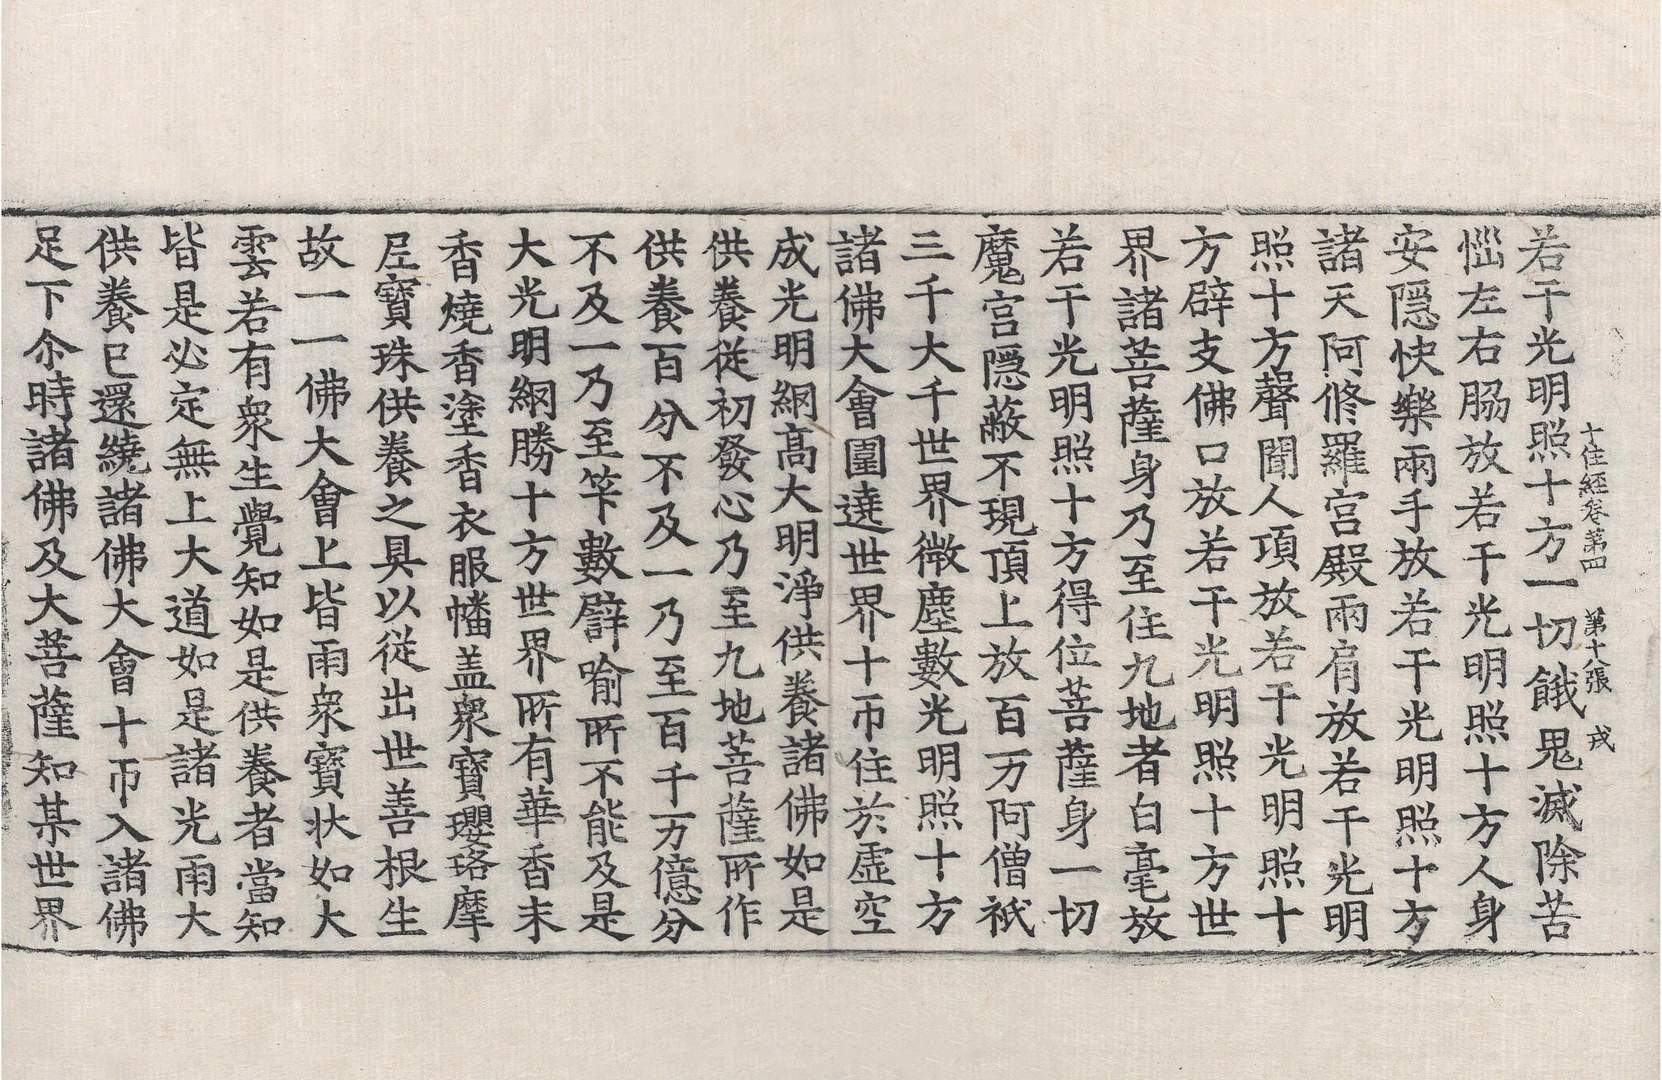 十住經卷第四 第十八張 戎
若干光明照十方一切餓鬼滅除苦
惱左右脇放若干光明照十方人身
安隱快樂兩手放若干光明照十方
諸天阿修羅宮殿兩肩放若干光明
照十方聲聞人頂放若干光明照十
方辟支佛口放若干光明照十方世
界諸菩薩身乃至住九地者白毫放
若干光明照十方得位菩薩身一切
魔宮隱蔽不現頂上放百万阿僧祇
三千大千世界微塵數光明照十方
諸佛大會圍遶世界十帀住於虛空
成光明網高大明淨供養諸佛如是
供養從初發心乃至九地菩薩所作
供養百分不及一乃至百千万億分
不及一乃至筭數譬喻所不能及是
大光明網勝十方世界所有華香末
香燒香塗香衣服幡盖衆寶瓔珞摩
尼寶珠供養之具以從出世善根生
故一一佛大會上皆雨衆寶狀如大
雲若有衆生覺知如是供養者當知
皆是必定無上大道如是諸光雨大
供養已還繞諸佛大會十帀入諸佛
足下尒時諸佛及大菩薩知某世界